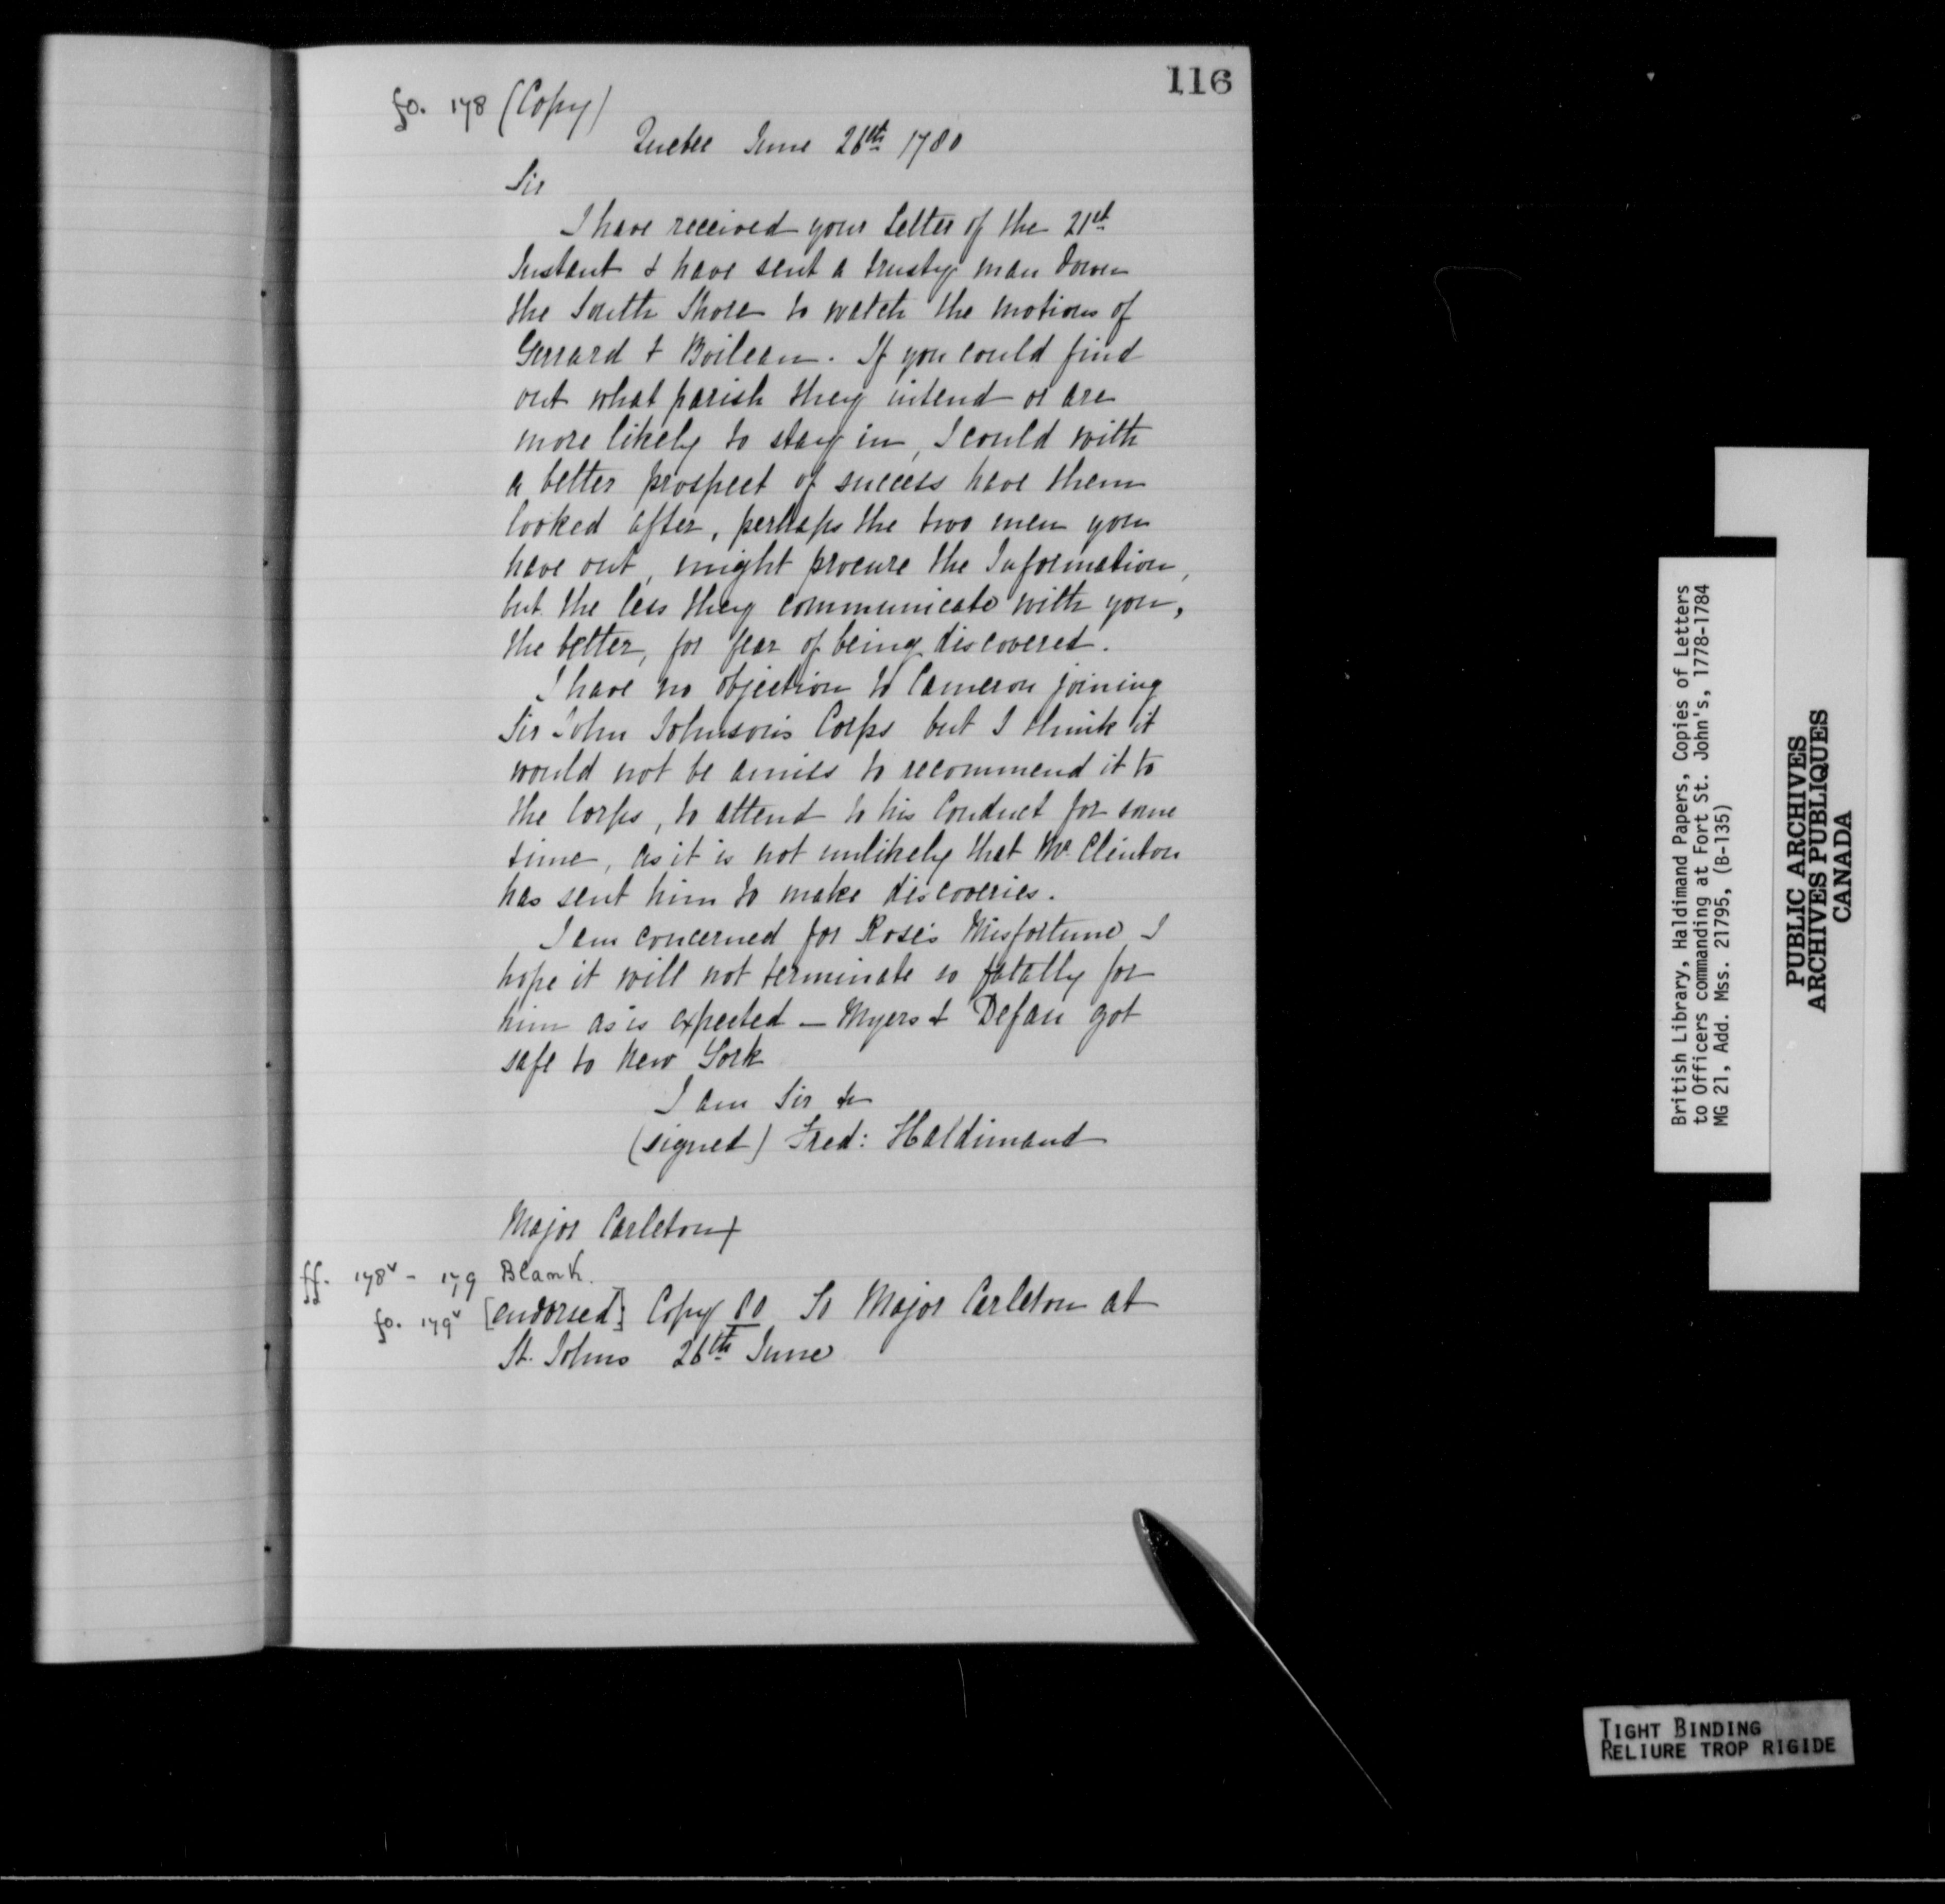 116
fo. 178 (Copy)
Quebec June 26th 1780
Sir
I have received your Letter of the 21st
Instant & have sent a trusty man down
the South Shore to watch the motions of
Gerrard & Boileau. If you could find
out what parish they intend or are
more likely to stay in, I could with
a better prospect of success have them
looked after, perhaps the two men you
have out, might procure the Information,
but the less they communicate with you,
the better, for fear of being discovered.
I have no objection to Cameron joining
Sir John Johnson's Corps but I think it
would not be amiss to recommend it to
the Corps, to attend to his Conduct for some
time, as it is not unlikely that Mr. Clinton
has sent him to make discoveries.
I am concerned for Rose's Misfortune, I
hope it will not terminate so fatally for
him as is expected — Myers & Defau got
safe to New York
I am Sir &
(signed) Fred: Haldimand
Major Carleton
ff. 178v - 179 Blank.
fo. 179v [endorsed] Copy 80 To Major Carleton at
St. Johns 26th June
British Library, Haldimand Papers, Copies of Letters
to Officers commanding at Fort St. John's, 1778-1784
MG 21, Add. Mss. 21795, (B-135)
PUBLIC ARCHIVES
ARCHIVES PUBLIQUES
CANADA
TIGHT BINDING
RELIURE TROP RIGIDE